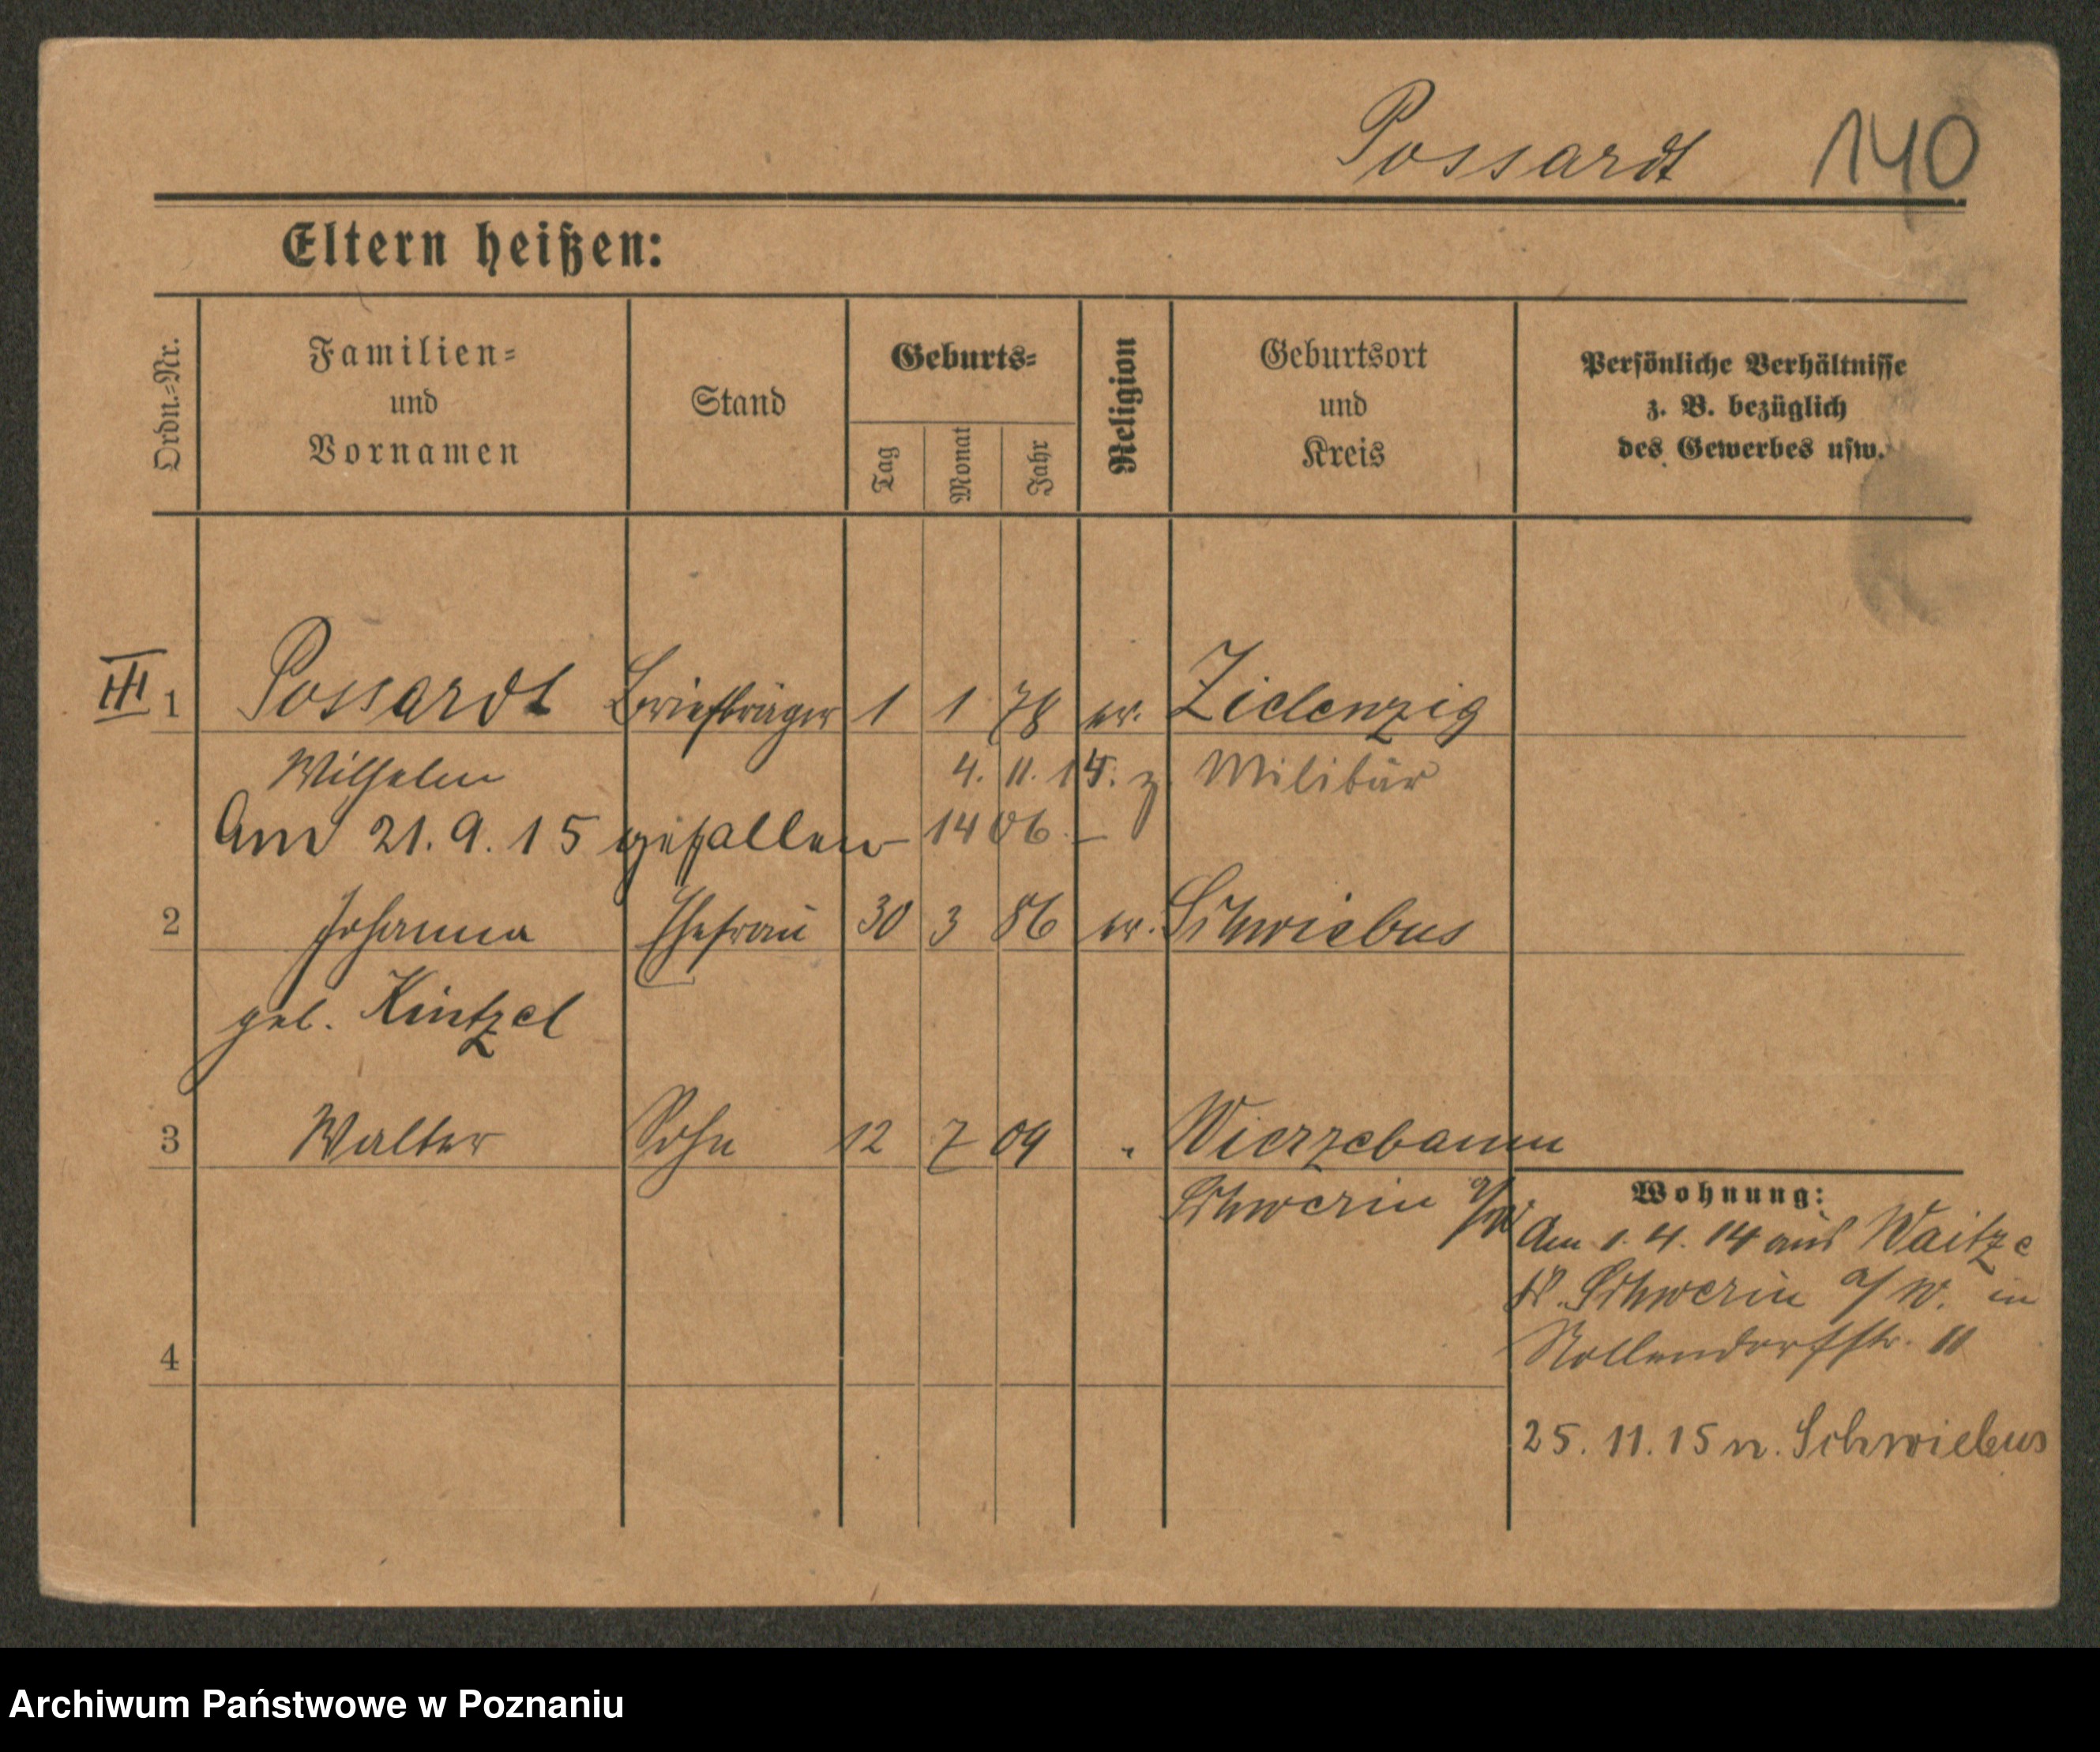 Possardt 140
Eltern heißen:
Ordn.-Nr.
Familien-
und
Vornamen
Stand
Geburts-
Tag
Monat
Jahr
Religion
Geburtsort
und
Kreis
Persönliche Verhältnisse
z. B. bezüglich
des Gewerbes usw.
III 1 Possardt Briefträger 1 1 78 ev. Zielenzig
Wilhelm 4. 11. 14. z. Militär
Am 21. 9. 15 gefallen 1406 –
2 Johanna Ehefrau 30 3 86 ev. Schwiebus
geb. Kintzel
3 Walter Sohn 12 7 09 " Wierzebaum
Schwerin a/W
Wohnung:
Am 1. 4. 14 aus Waitze
Kr. Schwerin a/W. in
Nollendorfstr. 11
4
25. 11. 15 n. Schwiebus
Archiwum Państwowe w Poznaniu